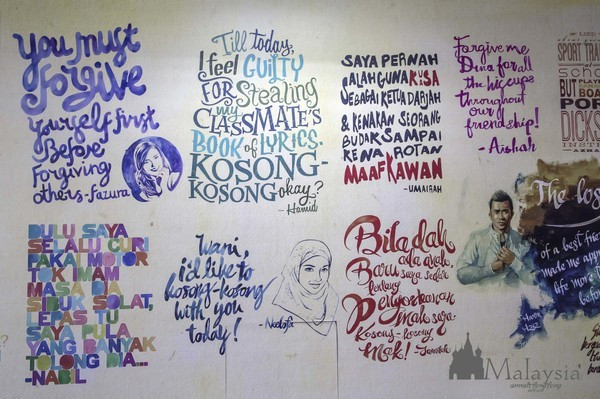 You must
forgive
yourself first
Before
Forgiving
others-Fazura
Till today,
I feel GUILTY
FOR Stealing
my
CLASSMATE'S
BOOK of LYRICS.
KOSONG-
KOSONG okay?
- Hamid
SAYA PERNAH
SALAH GUNA KUSA
SEBAGAI KETUA DARJAH
& KENAKAN SEORANG
BUDAK SAMPAI
KENA ROTAN
MAAF KAWAN
- UMAIRAH
Forgive me
Dina for all
the hiccups
throughout
our
friendship!
- Aishah
SPORT
BUT
BOA
POR
DICKS
DULU SAYA
SELALU CURI
PAKAI MOTOR
TOK IMAM
MASA DIA
SIBUK SOLAT,
LEPAS TU
SAYA PULA
YANG BANYAK
TOLONG DIA...
-NABIL
Wani,
i'd like to
kosong-kosong
with you
today!
Bila dah
ada anak,
Baru saya sedar
tentang
Pengorbanan
mak saya.
Kosong-kosong
Mak!
The los
of a best frie
made me app
life more
befor
Malaysia